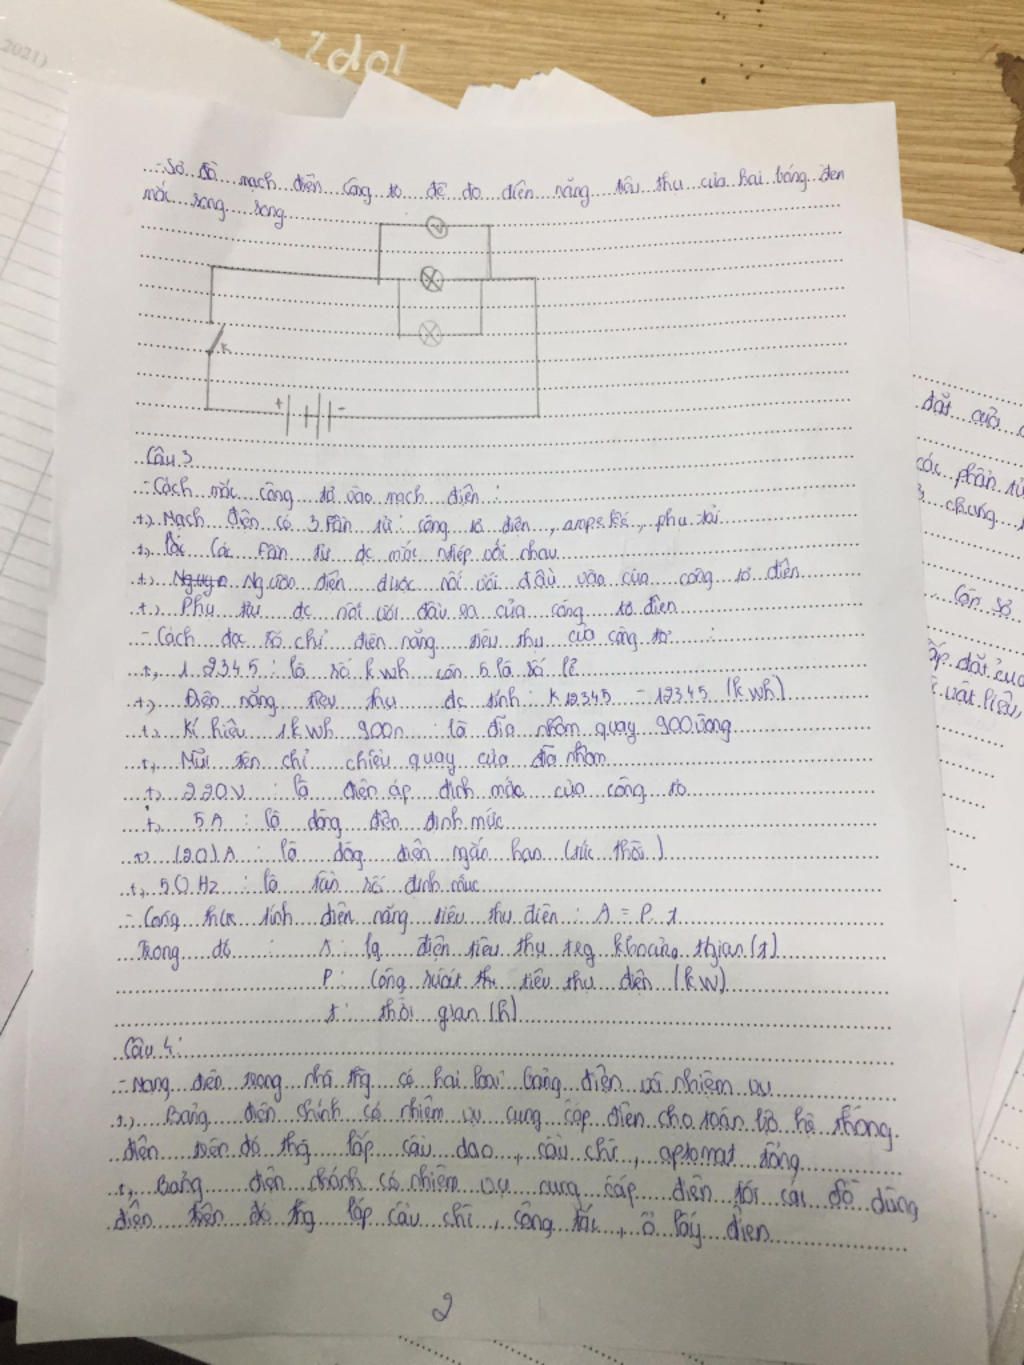 2021)
Idol
- Sơ đồ mạch điện công tơ để đo điện năng tiêu thụ của hai bóng đen
mắc song song
V
K
+ -
Câu 3
- Cách mắc công tơ vào mạch điện :
+, Mạch điện có 3 Fần tử : công tơ điện, ampe kế, phụ tải
+, Các Fần tử đc mắc ntiếp với nhau
+, Nguồn điện được nối với đầu vào của công tơ điện
+, Phụ đc nối với đầu ra của công tơ điện
- Cách đọc số chỉ điện năng tiêu thụ của công tơ :
+, 12345 : là số kwh còn 5 là số lẻ
+, Điện năng tiêu thụ đc tính : K12345 = 12345 (kwh)
+, Kí hiệu 1kwh 900n : là đĩa nhôm quay 900 vòng
+, Mũi tên chỉ chiều quay của đĩa nhôm
+, 220V : là điện áp định mức của công tơ
+, 5A : là dòng điện định mức
+, (20)A : là dòg điện ngắn hạn (tức thời)
+, 50Hz : là tần số định mức
- Công thức tính điện năng tiêu thụ điện : A = P.t
Trong đó : A : lg điện tiêu thụ trg khoảng thgian (t)
P : Công suất tiêu thụ điện (kW)
t : thời gian (h)
Câu 4 :
- Mạng điện trong nhà thg có hai loại bảng điện và nhiệm vụ
+, Bảng điện chính có nhiệm vụ cung cấp điện cho toàn bộ hệ thống
điện trên đó thg lắp cầu dao, cầu chì, aptomat tổng
+, Bảng điện nhánh có nhiệm vụ cung cấp điện tới các đồ dùng
điện trên đó thg lắp cầu chì, công tắc, ổ lấy điện
2
đặt của
các phần tử
chung
lắp đặt của
vật liệu,